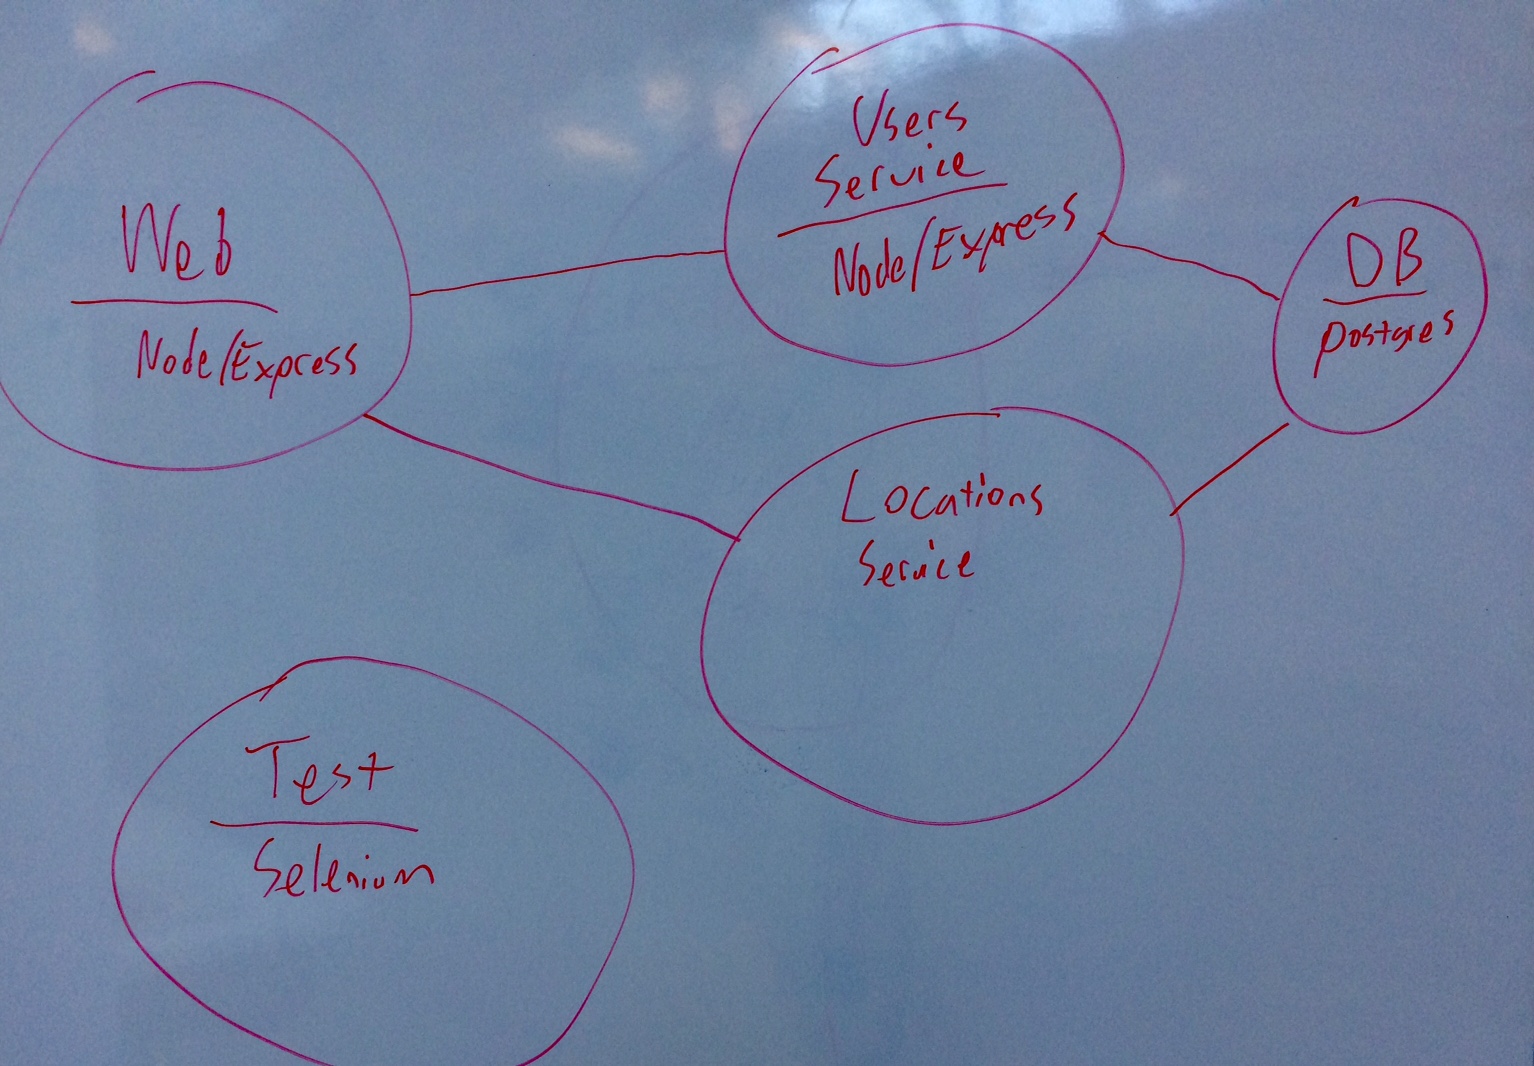 Web
Node/Express
Users
Service
Node/Express
DB
Postgres
Locations
Service
Test
Selenium